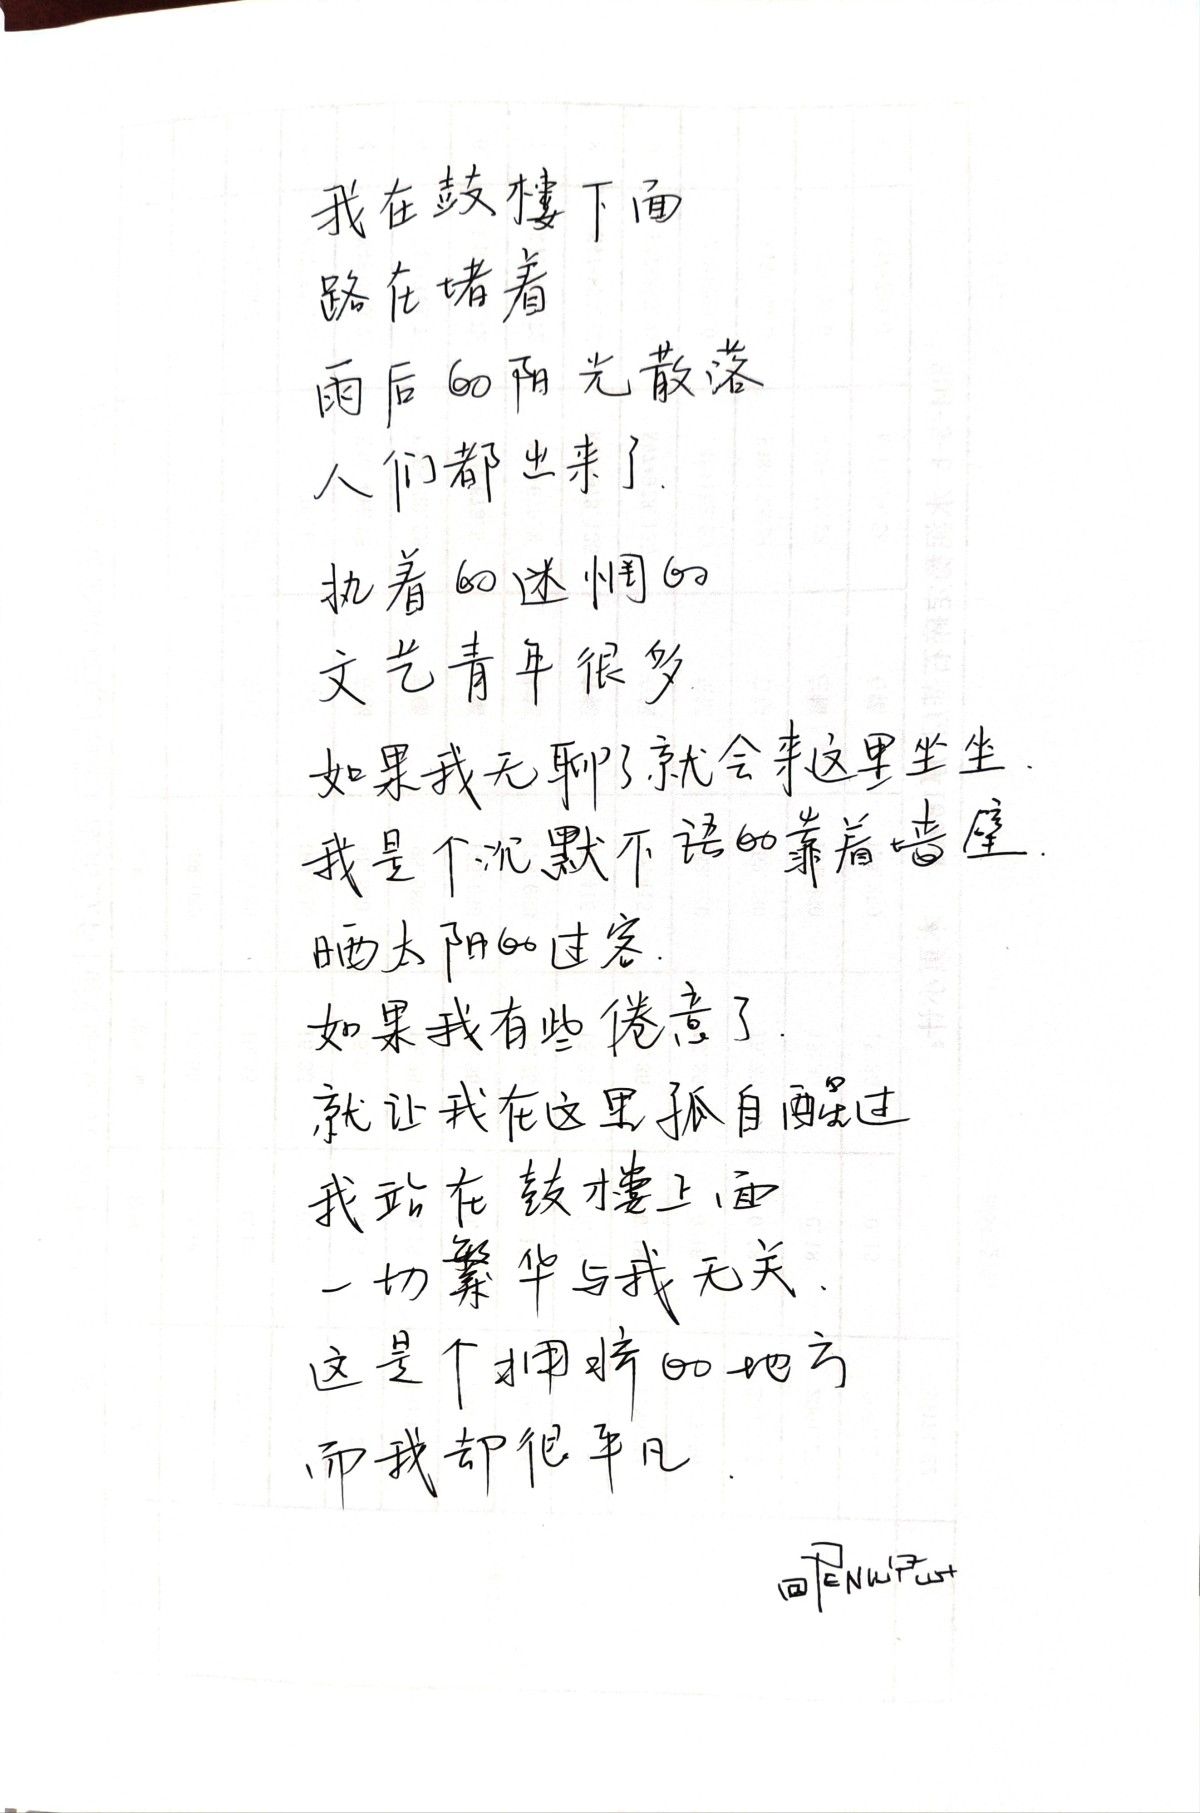 我在鼓楼下面
路在堵着
雨后的阳光散落
人们都出来了.
执着的迷惘的
文艺青年很多
如果我无聊了就会来这里坐坐.
我是个沉默不语的靠着墙壁.
晒太阳的过客.
如果我有些倦意了.
就让我在这里孤自醒过
我站在鼓楼上面
一切繁华与我无关.
这是个拥挤的地方
而我却很平凡.